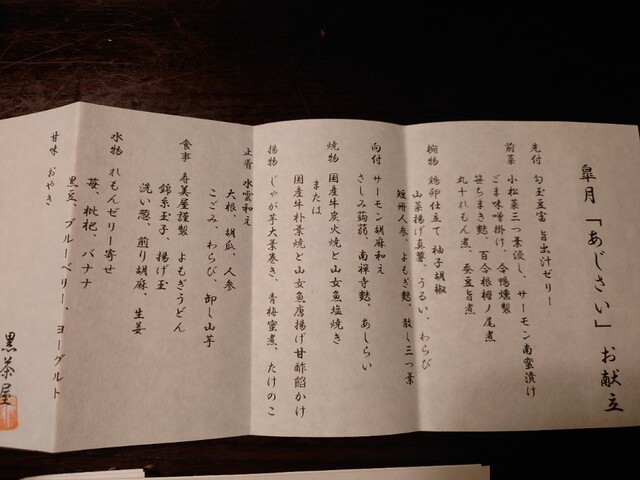 皐月「あじさい」お献立
先付 勾玉豆富 旨出汁ゼリー
前菜 小松菜三つ葉浸し、サーモン南蜜漬け
ごま味噌掛け、合鴨燻製
笹ちまき麩、百合根柵ノ尾煮
丸十れもん煮、蚕豆旨煮
椀物 鶏卵仕立て 柚子胡椒
山菜揚げ真薯、うるい、わらび
短冊人参、よもぎ麩、散し三つ葉
向付 サーモン胡麻和え
さしみ蒟蒻、南禅寺麩、あしらい
焼物 国産牛炭火焼と山女魚塩焼き
または
国産牛朴葉焼と山女魚唐揚げ甘酢餡かけ
揚物 じゃが芋大葉巻き、青梅蜜煮、たけのこ
止肴 水雲和え
大根、胡瓜、人参
こごみ、わらび、卸し山芋
食事 寿美屋謹製 よもぎうどん
錦糸玉子、揚げ玉
洗い葱、煎り胡麻、生姜
水物 れもんゼリー寄せ
苺、枇杷、バナナ
黒豆、ブルーベリー、ヨーグルト
甘味 おやき
黒茶屋